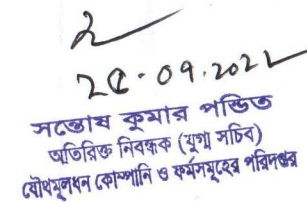 ২৫.০৭.২০২২
সন্তোষ কুমার পন্ডিত
অতিরিক্ত নিবন্ধক (যুগ্ম সচিব)
যৌথমূলধন কোম্পানি ও ফর্মসমূহের পরিদপ্তর